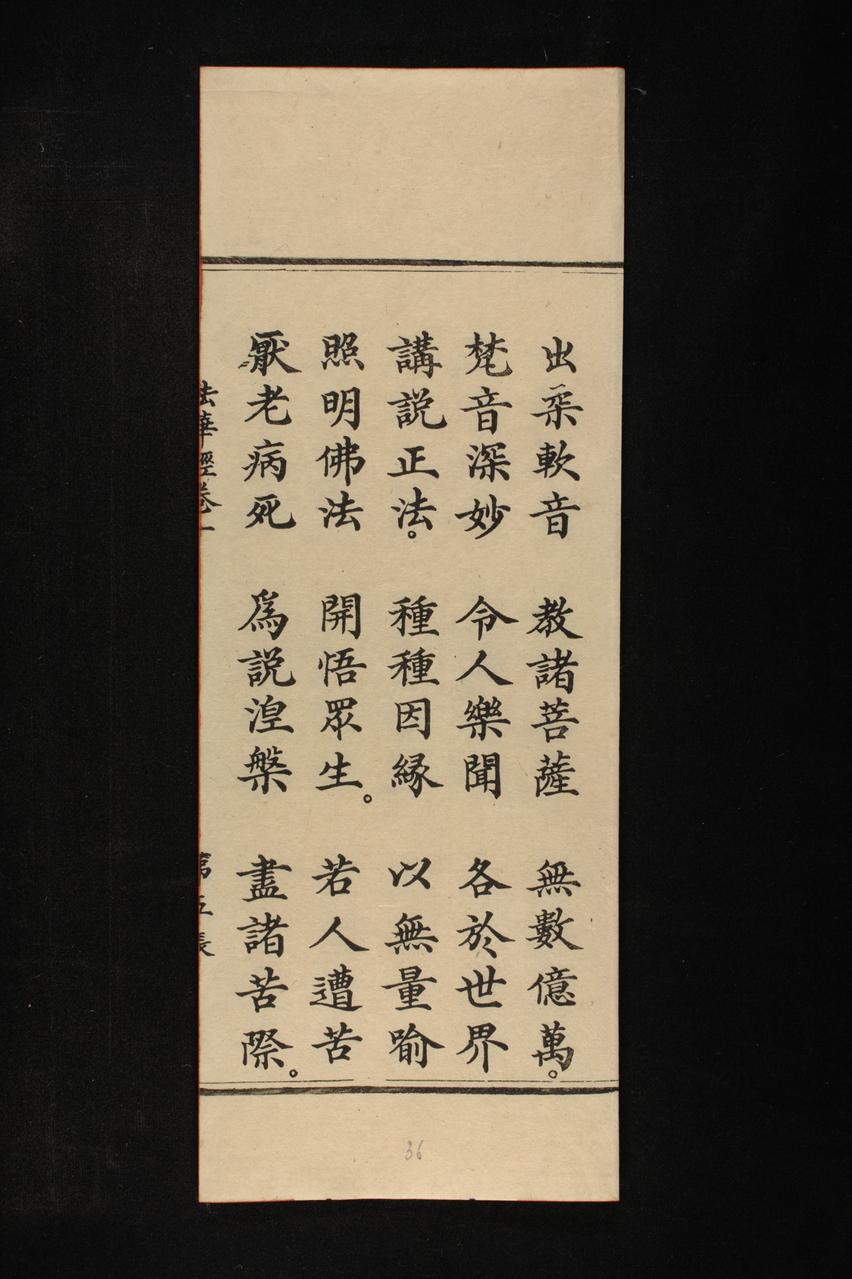 出柔軟音　教諸菩薩　無數億萬。
梵音深妙　令人樂聞　各於世界
講説正法。　種種因縁　以無量喻
照明佛法　開悟眾生。　若人遭苦
厭老病死　爲説涅槃　盡諸苦際。
法華經卷一　第五張
36